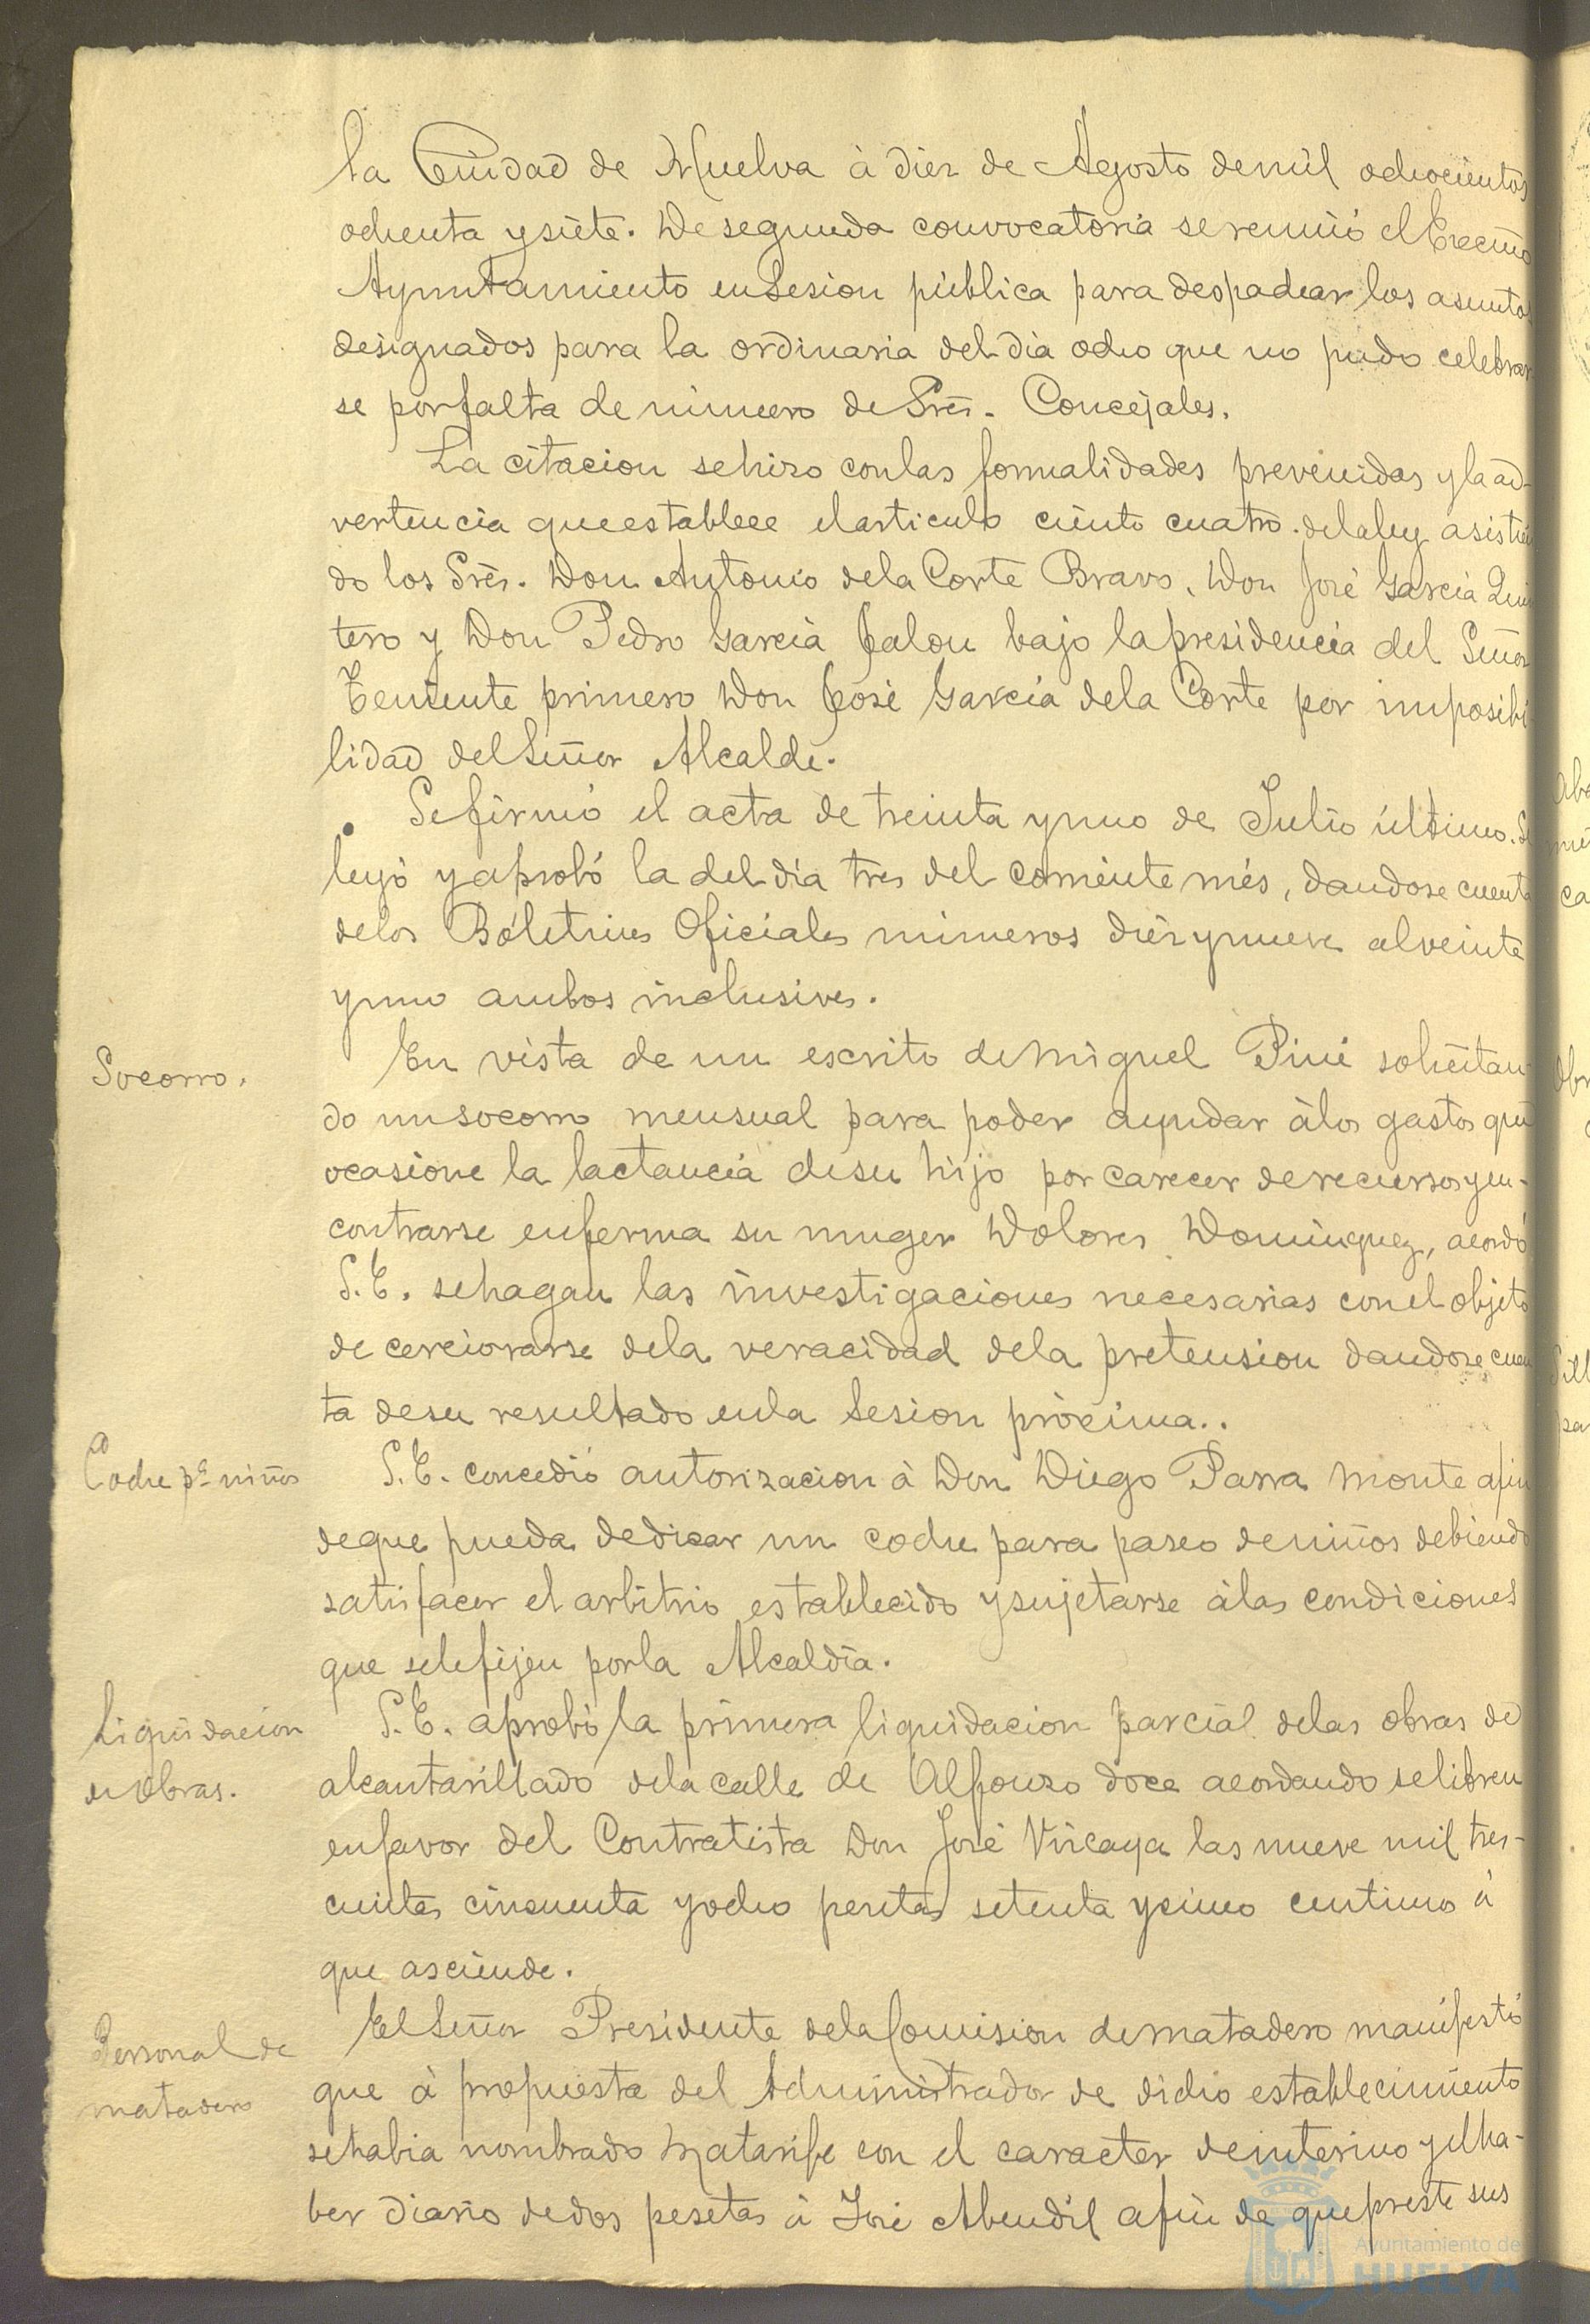 la Ciudad de Huelva à diez de Agosto de mil ochocientos
ochenta y siete. De segunda convocatoria se reunió el Excmo
Ayuntamiento en Sesion pública para despachar los asuntos
designados para la ordinaria del dia ocho que no pudo celebrar
se por falta de número de Sres. Concejales.
La citacion se hizo con las formalidades prevenidas y la ad-
vertencia que establece el articulo ciento cuatro de la ley asistien
do los Sres. Don Antonio de la Corte Bravo, Don José Garcia Quin
tero y Don Pedro Garcia Jalon bajo la presidencia del Señor
Teniente primero Don José Garcia de la Corte por imposibi
lidad del Señor Alcalde.
Se firmó el acta de treinta y uno de Julio último. Se
leyó y aprobó la del dia tres del corriente més, dandose cuenta
de los Boletines Oficiales números diez y nueve al veinte
y uno ambos inclusives.
Socorro.
En vista de un escrito de Miguel Pini solicitan
do un socorro mensual para poder ayudar à los gastos que
ocasione la lactancia de su hijo por carecer de recursos y en-
contrarse enferma su muger Dolores Dominguez, acordó
S.E. se hagan las investigaciones necesarias con el objeto
de cerciorarse de la veracidad de la pretension dandose cuen
ta de su resultado en la Sesion próxima..
Coche pª niños
S.E. concedió autorizacion à Don Diego Parra Monte a fin
de que pueda dedicar un coche para paseo de niños debiendo
satisfacer el arbitrio establecido y sujetarse à las condiciones
que se le fijen por la Alcaldia.
Liquidacion
de Obras.
S.E. aprobó la primera liquidacion parcial de las obras de
alcantarillado de la calle de Alfonso doce acordando se libren
en favor del Contratista Don José Vizcaya las nueve mil tres-
cientas cincuenta y ocho pesetas setenta y cinco centimos à
que asciende.
Personal de
matadero
El Señor Presidente de la Comision de matadero manifestó
que à propuesta del Administrador de dicho establecimiento
se habia nombrado Matarife con el caracter de interino y el ha-
ber diario de dos pesetas à José Abendil a fin de que preste sus
Ayuntamiento de
HUELVA